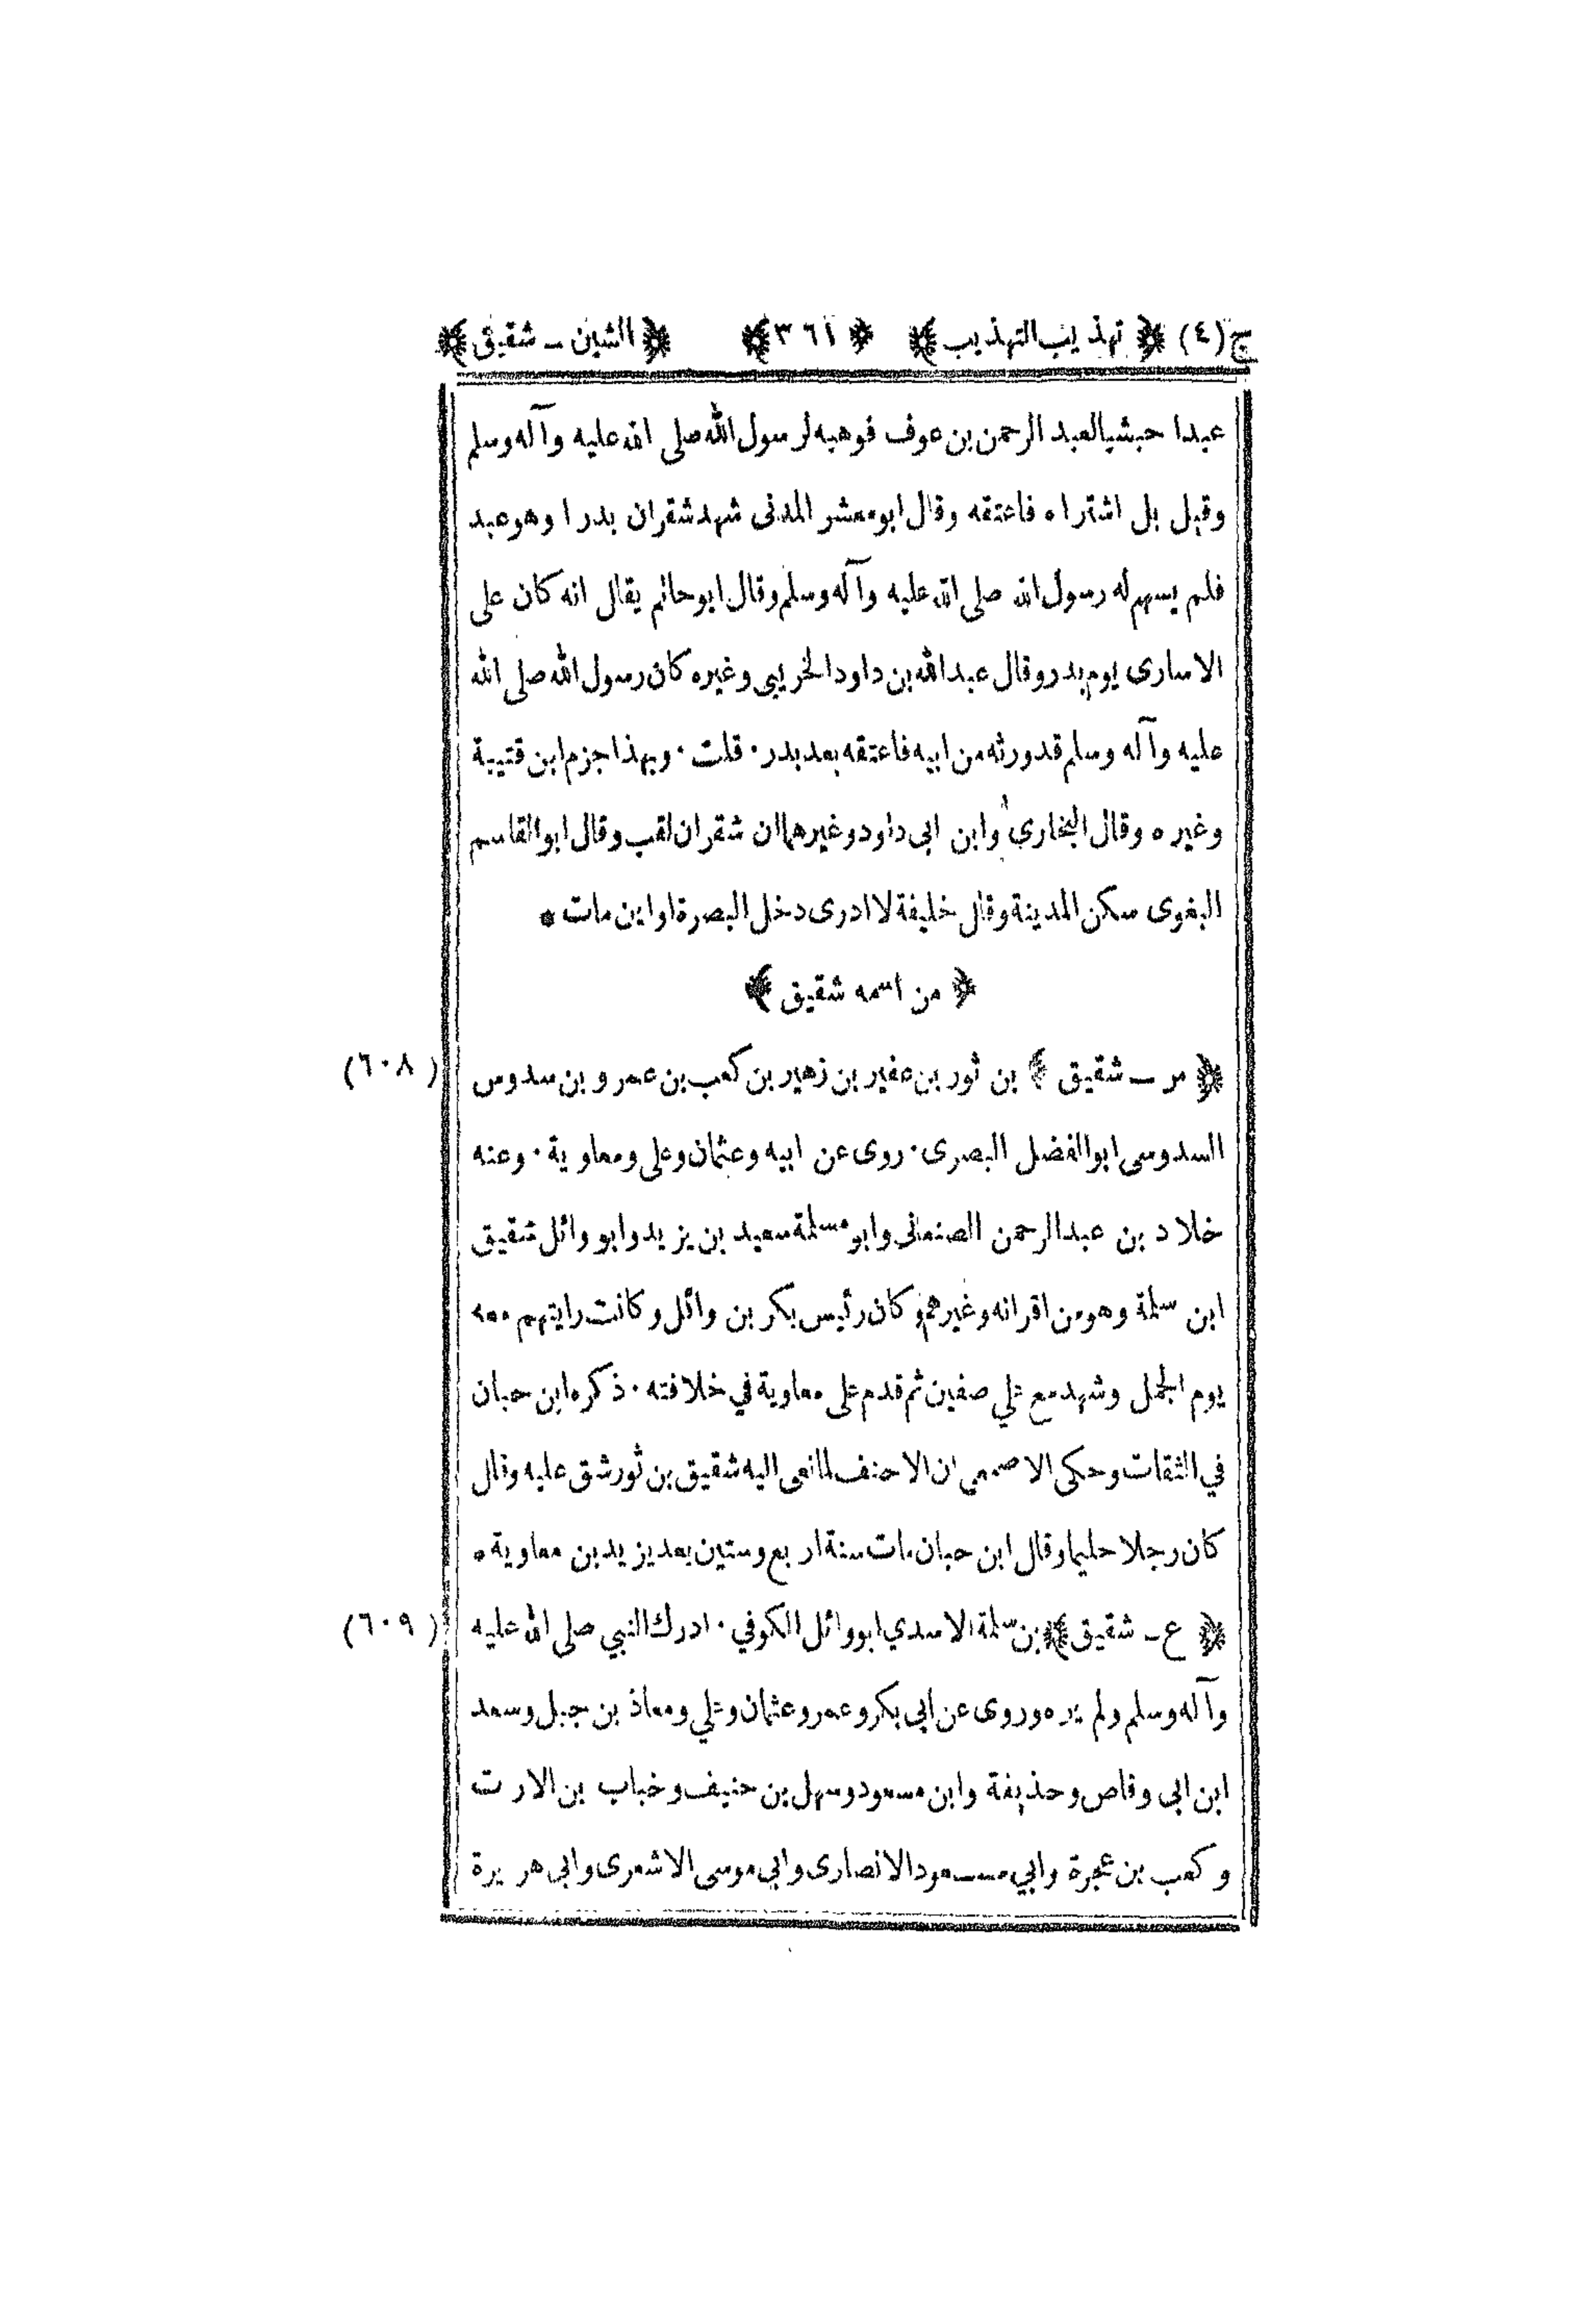 ج (٤) ﴿ تهذيب التهذيب ﴾ ﴿ ٣٦١ ﴾ ﴿ الشين ـ شقيق ﴾
عبدا حبشيا لعبد الرحمن بن عوف فوهبه لرسول الله صلى الله عليه وآله وسلم
وقيل بل اشتراه فاعتقه وقال ابو معشر المدنى شهد شقران بدرا وهو عبد
فلم يسهم له رسول الله صلى الله عليه وآله وسلم وقال ابو حاتم يقال انه كان على
الاسارى يوم بدر وقال عبد الله بن داود الخريبى وغيره كان رسول الله صلى الله
عليه وآله وسلم قد ورثه من ابيه فاعتقه بعد بدر · قلت · وبهذا جزم ابن قتيبة
وغيره وقال البخارى وابن ابى داود وغيرهما ان شقران لقب وقال ابو القاسم
البغوى سكن المدينة وقال خليفة لا ادرى دخل البصرة او اين مات *
﴿ من اسمه شقيق ﴾
﴿ مر ـ شقيق ﴾ بن ثور بن عفير بن زهير بن كعب بن عمرو بن سدوس (٦٠٨)
السدوسى ابو الفضل البصرى · روى عن ابيه وعثمان وعلى ومعاوية · وعنه
خلاد بن عبد الرحمن الصنعانى وابو مسلمة سعيد بن يزيد وابو وائل شقيق
ابن سلمة وهو من اقرانه وغيرهم وكان رئيس بكر بن وائل وكانت رايتهم معه
يوم الجمل وشهد مع علي صفين ثم قدم على معاوية في خلافته · ذكره ابن حبان
في الثقات وحكى الاصمعى ان الاحنف لما نعى اليه شقيق بن ثور شق عليه وقال
كان رجلا حليما وقال ابن حبان مات سنة اربع وستين بعد يزيد بن معاوية *
﴿ ع ـ شقيق ﴾ بن سلمة الاسدي ابو وائل الكوفي · ادرك النبي صلى الله عليه (٦٠٩)
وآله وسلم ولم يره وروى عن ابي بكر وعمر وعثمان وعلي ومعاذ بن جبل وسعد
ابن ابى وقاص وحذيفة وابن مسعود وسهل بن حنيف وخباب بن الارت
وكعب بن عجرة وابي مسعود الانصارى وابي موسى الاشعرى وابى هريرة